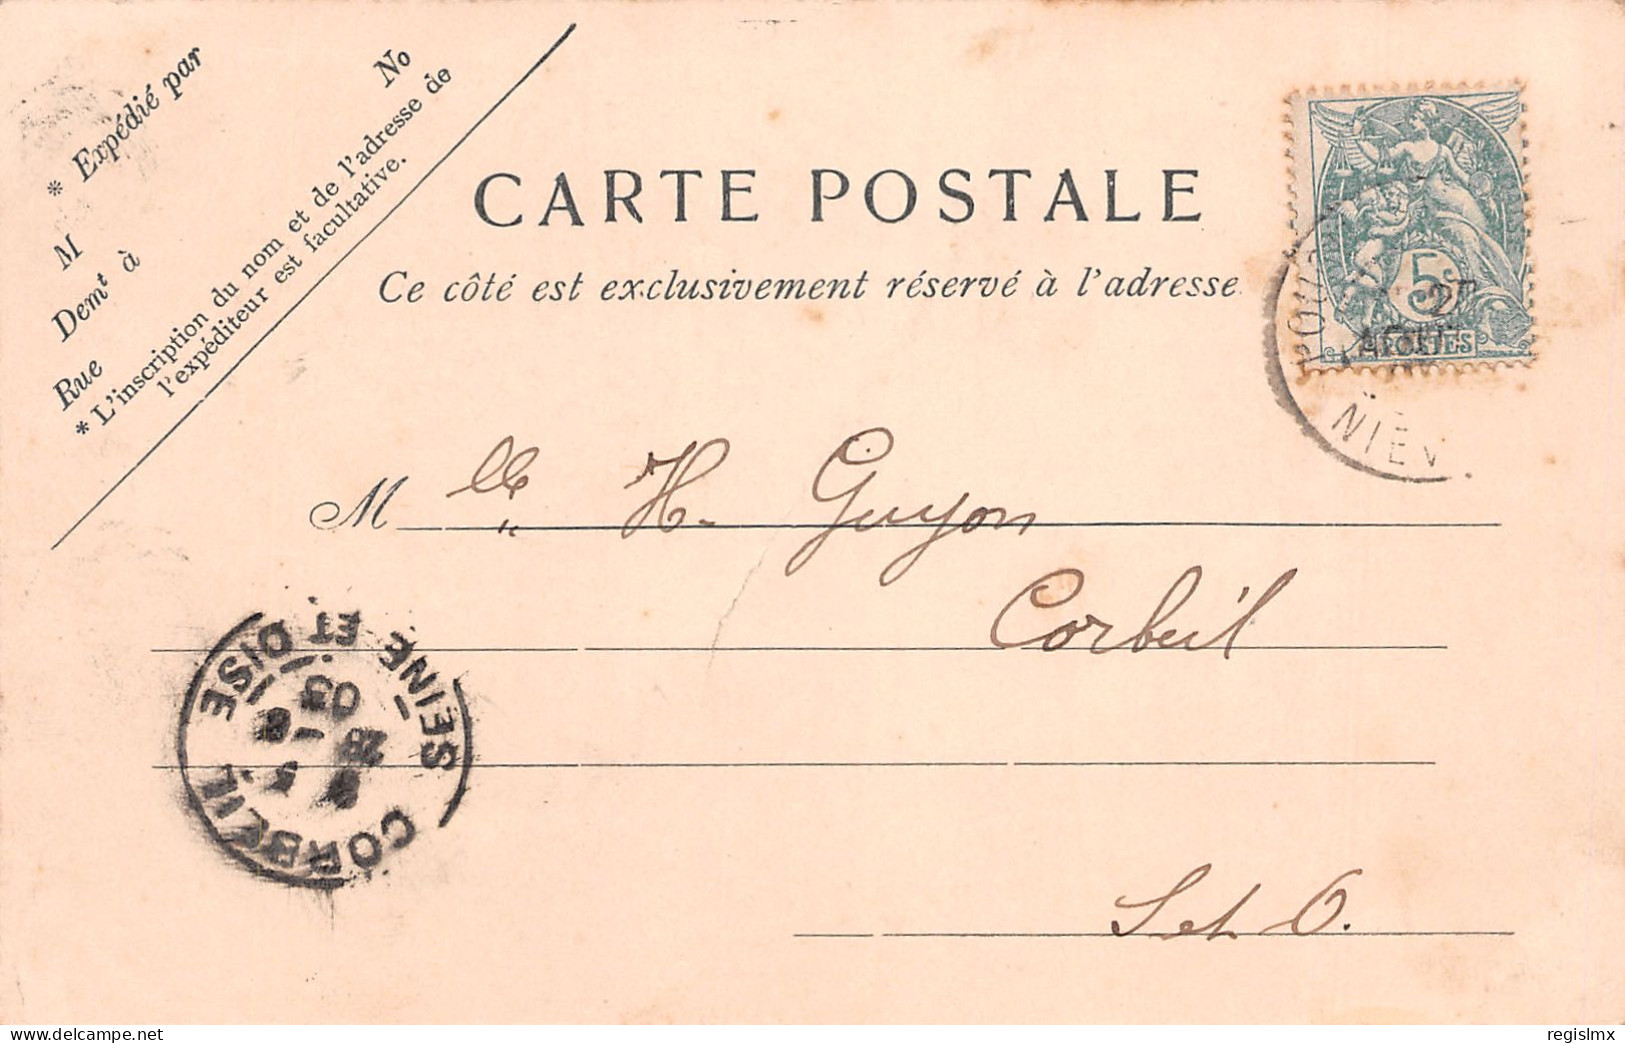 * Expédié par
No
M
Demt à
Rue
* L'inscription du nom et de l'adresse de
l'expéditeur est facultative.
CARTE POSTALE
Ce côté est exclusivement réservé à l'adresse
5c
POSTES
NIÈV
Mlle H. Guyon
Corbeil
S et O.
CORBEIL
SEINE ET OISE
5
28
8
03
delcampe.net
regislmx